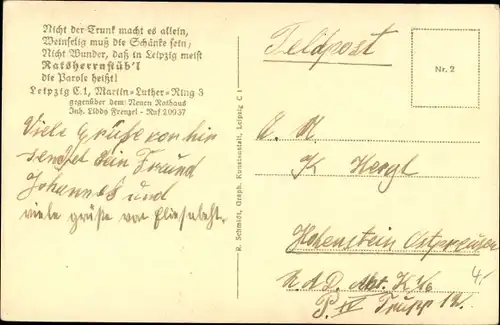 Nicht der Trunk macht es allein,
Weinselig muß die Schänke sein;
Nicht Wunder, daß in Leipzig meist
Ratsherrnstüb'l
die Parole heißt!
Leipzig C.1, Martin-Luther-Ring 3
gegenüber dem Neuen Rathaus
Inh. Libby Frenzel - Ruf 20937
Viele Grüße von hier
sendet dein Freund
Johannes und
viele grüße von Eliesabeht.
R. Schmidt, Graph. Kunstanstalt, Leipzig C 1
Feldpost
Nr. 2
K Hergt
Hohenstein Ostpreußen
R.A.D. Abt. K
P. IV Trupp
4,-